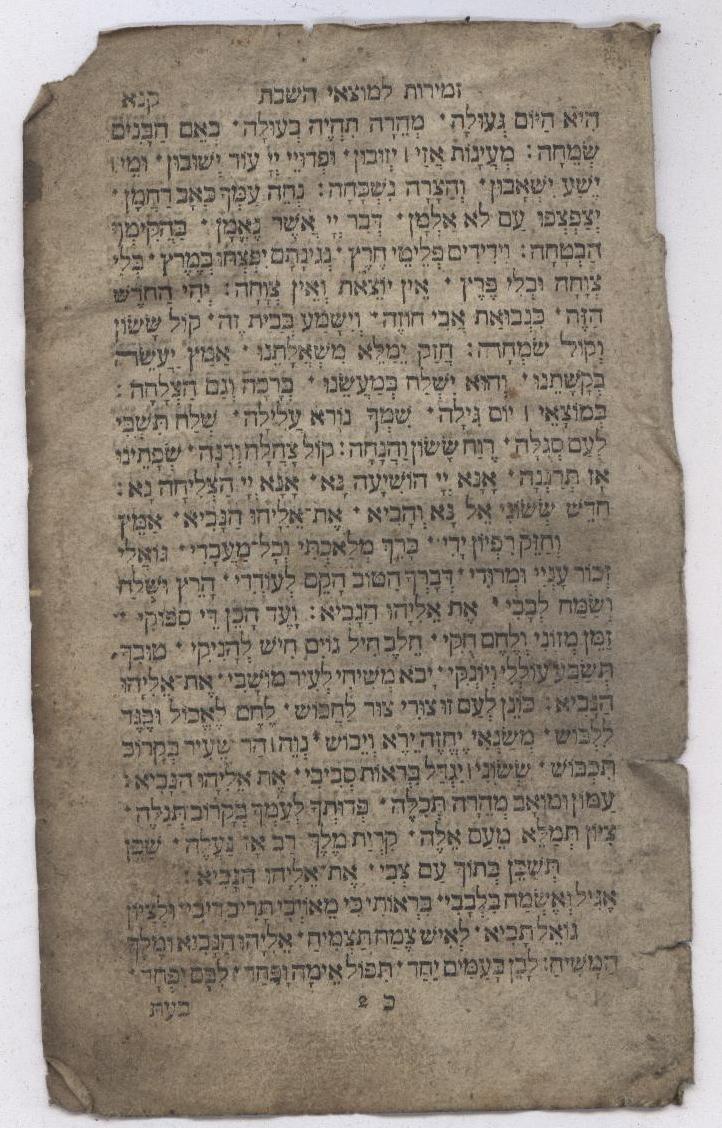 זמירות למוצאי השבת קנא
הִיא הַיּוֹם גְּעוּלָה׳ מְהֵרָה תִּהְיֶה בְעוּלָה׳ כְּאֵם הַבָּנִים
שְׂמֵחָה: מַעֲיָנוֹת אֲזַי ׀ יְזוּבוּן׳ וּפְדוּיֵי יְיָ עוֹד יְשׁוּבוּן׳ וּמֵי ׀
יֶשַׁע יִשְׁאָבוּן׳ וְהַצָּרָה נִשְׁכָּחָה: נְחֵה עַמְּךָ כְּאָב רַחֲמָן׳
יְצַפְצְפוּ עַם לֹא אַלְמָן׳ דְּבַר יְיָ אֲשֶׁר נֶאֱמָן׳ בַּהֲקִימְךָ
הַבְטָחָה: וִידִידִים פְּלִיטֵי חֶרֶץ׳ נְגִינָתָם יִפְצְחוּ בְמֶרֶץ׳ בְּלִי
צְוָחָה וּבְלִי פֶּרֶץ׳ אֵין יוֹצֵאת וְאֵין צְוָחָה: יְהִי הַחֹדֶשׁ
הַזֶּה׳ כִּנְבוּאַת אֲבִי חוֹזֶה׳ וְיִשָּׁמַע בְּבַיִת זֶה׳ קוֹל שָׂשׂוֹן
וְקוֹל שִׂמְחָה: חָזָק יְמַלֵּא מִשְׁאֲלוֹתֵנוּ׳ אַמִּיץ יַעֲשֶׂה
בַּקָּשָׁתֵנוּ׳ וְהוּא יִשְׁלַח בְּמַעֲשֵׂנוּ׳ בְּרָכָה וְגַם הַצְלָחָה:
בְּמוֹצָאֵי ׀ יוֹם גִּילָה׳ שִׁמְךָ נוֹרָא עֲלִילָה׳ שְׁלַח תִּשְׁבִּי
לְעַם סְגֻלָּה׳ רֶוַח שָׂשׂוֹן וַהֲנָחָה: קוֹל צָהֳלָה וְרִנָּה׳ שְׂפָתֵינוּ
אָז תְּרַנֵּנָה׳ אָנָּא יְיָ הוֹשִׁיעָה נָּא׳ אָנָּא יְיָ הַצְלִיחָה נָא:
חַדֵּשׁ שְׂשׂוֹנִי אֵל נָא וְהָבִיא׳ אֶת־אֵלִיָּהוּ הַנָּבִיא׳ אַמֵּץ
וְחַזֵּק רִפְיוֹן יָדִי׳ בָּרֵךְ מְלַאכְתִּי וְכָל־מַעְבָּדִי׳ גּוֹאֲלִי
זְכוֹר עָנְיִי וּמְרוּדִי׳ דְּבָרְךָ הַטּוֹב הָקֵם לְעוֹדְדִי׳ הָרֵץ וּשְׁלַח
וְשַׂמַּח לְבָבִי׳ אֶת אֵלִיָּהוּ הַנָּבִיא: וָעֵד הָכֵן דֵּי סִפּוּקִי׳
זַמֵּן מְזוֹנִי וְלֶחֶם חֻקִּי׳ חֵלֶב חֵיל גּוֹיִם חִישׁ לְהָנִיקִי׳ טוּבְךָ
תַּשְׂבַּע עוֹלָלַי וְיוֹנְקִי׳ יָבֹא מְשִׁיחִי לְעִיר מוֹשָׁבִי׳ אֶת־אֵלִיָּהוּ
הַנָּבִיא: כּוֹנֵן לְעַם זוּ צוּרִי צוּר לַחֲפוֹשׁ׳ לֶחֶם לֶאֱכוֹל וּבֶגֶד
לִלְבּוֹשׁ׳ מְשַׂנְאַי יֶחֱזֶה יֵרֵא וְיֵבוֹשׁ׳ נְוֵה ׀ הַר שֵׂעִיר בְּקָרוֹב
תִּכְבּוֹשׁ׳ שְׂשׂוֹנִי ׀ יִגְדַּל בִּרְאוֹת סְבִיבִי׳ אֶת אֵלִיָּהוּ הַנָּבִיא:
עַמּוֹן וּמוֹאָב מְהֵרָה תְכַלֶּה׳ פְּדוּתְךָ לְעַמְּךָ בְּקָרוֹב תְּגַלֶּה׳
צִיּוֹן תְּמַלֵּא מֵעַם אֵלֶּה׳ קִרְיַת מֶלֶךְ רָב אָז נַעֲלֶה׳ שַׁבֵּן
תִּשְׁכֵּן בְּתוֹךְ עַם צְבִי׳ אֶת־אֵלִיָּהוּ הַנָּבִיא:
אָגִיל וְאֶשְׂמַח בִּלְבָבִי׳ בִּרְאוֹתִי כִּי מֵאוֹיְבִי תָּרִיב רִיבִי׳ וּלְצִיּוֹן
גּוֹאֵל תָּבִיא׳ לְאִישׁ צֶמַח תַּצְמִיחַ׳ אֵלִיָּהוּ הַנָּבִיא וּמֶלֶךְ
הַמָּשִׁיחַ: לָכֵן בָּעַמִּים יַחַד׳ תִּפּוֹל אֵימָה וָפַחַד׳ לִבָּם יִפְחָד׳
כ 2 בעת